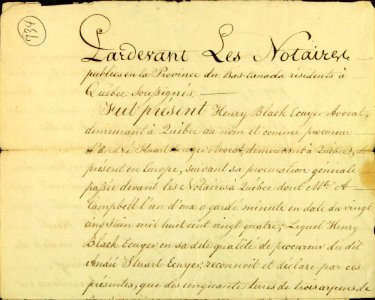 734
Pardevant Les Notaires
publics en la Province du Bas-Canada residents à
Québec Soussignés,
Fut présent Henry Black Ecuyer Avocat,
demeurant à Québec au nom et comme procureur
d'André Stuart Ecuyer Avocat, demeurant à Québec, de
présent en Europe, suivant sa procuration generale
passée devant les Notaires à Québec dont Mtre A
Campbell l'un d'eux a gardé minute en date du vingt
cinq Juin mil huit cent vingt quatre; Lequel Henry
Black Ecuyer en sa dite qualité de procureur du dit
André Stuart Ecuyer, reconnoit et déclare par ces
presentes, que des cinquante livres de trois arpens